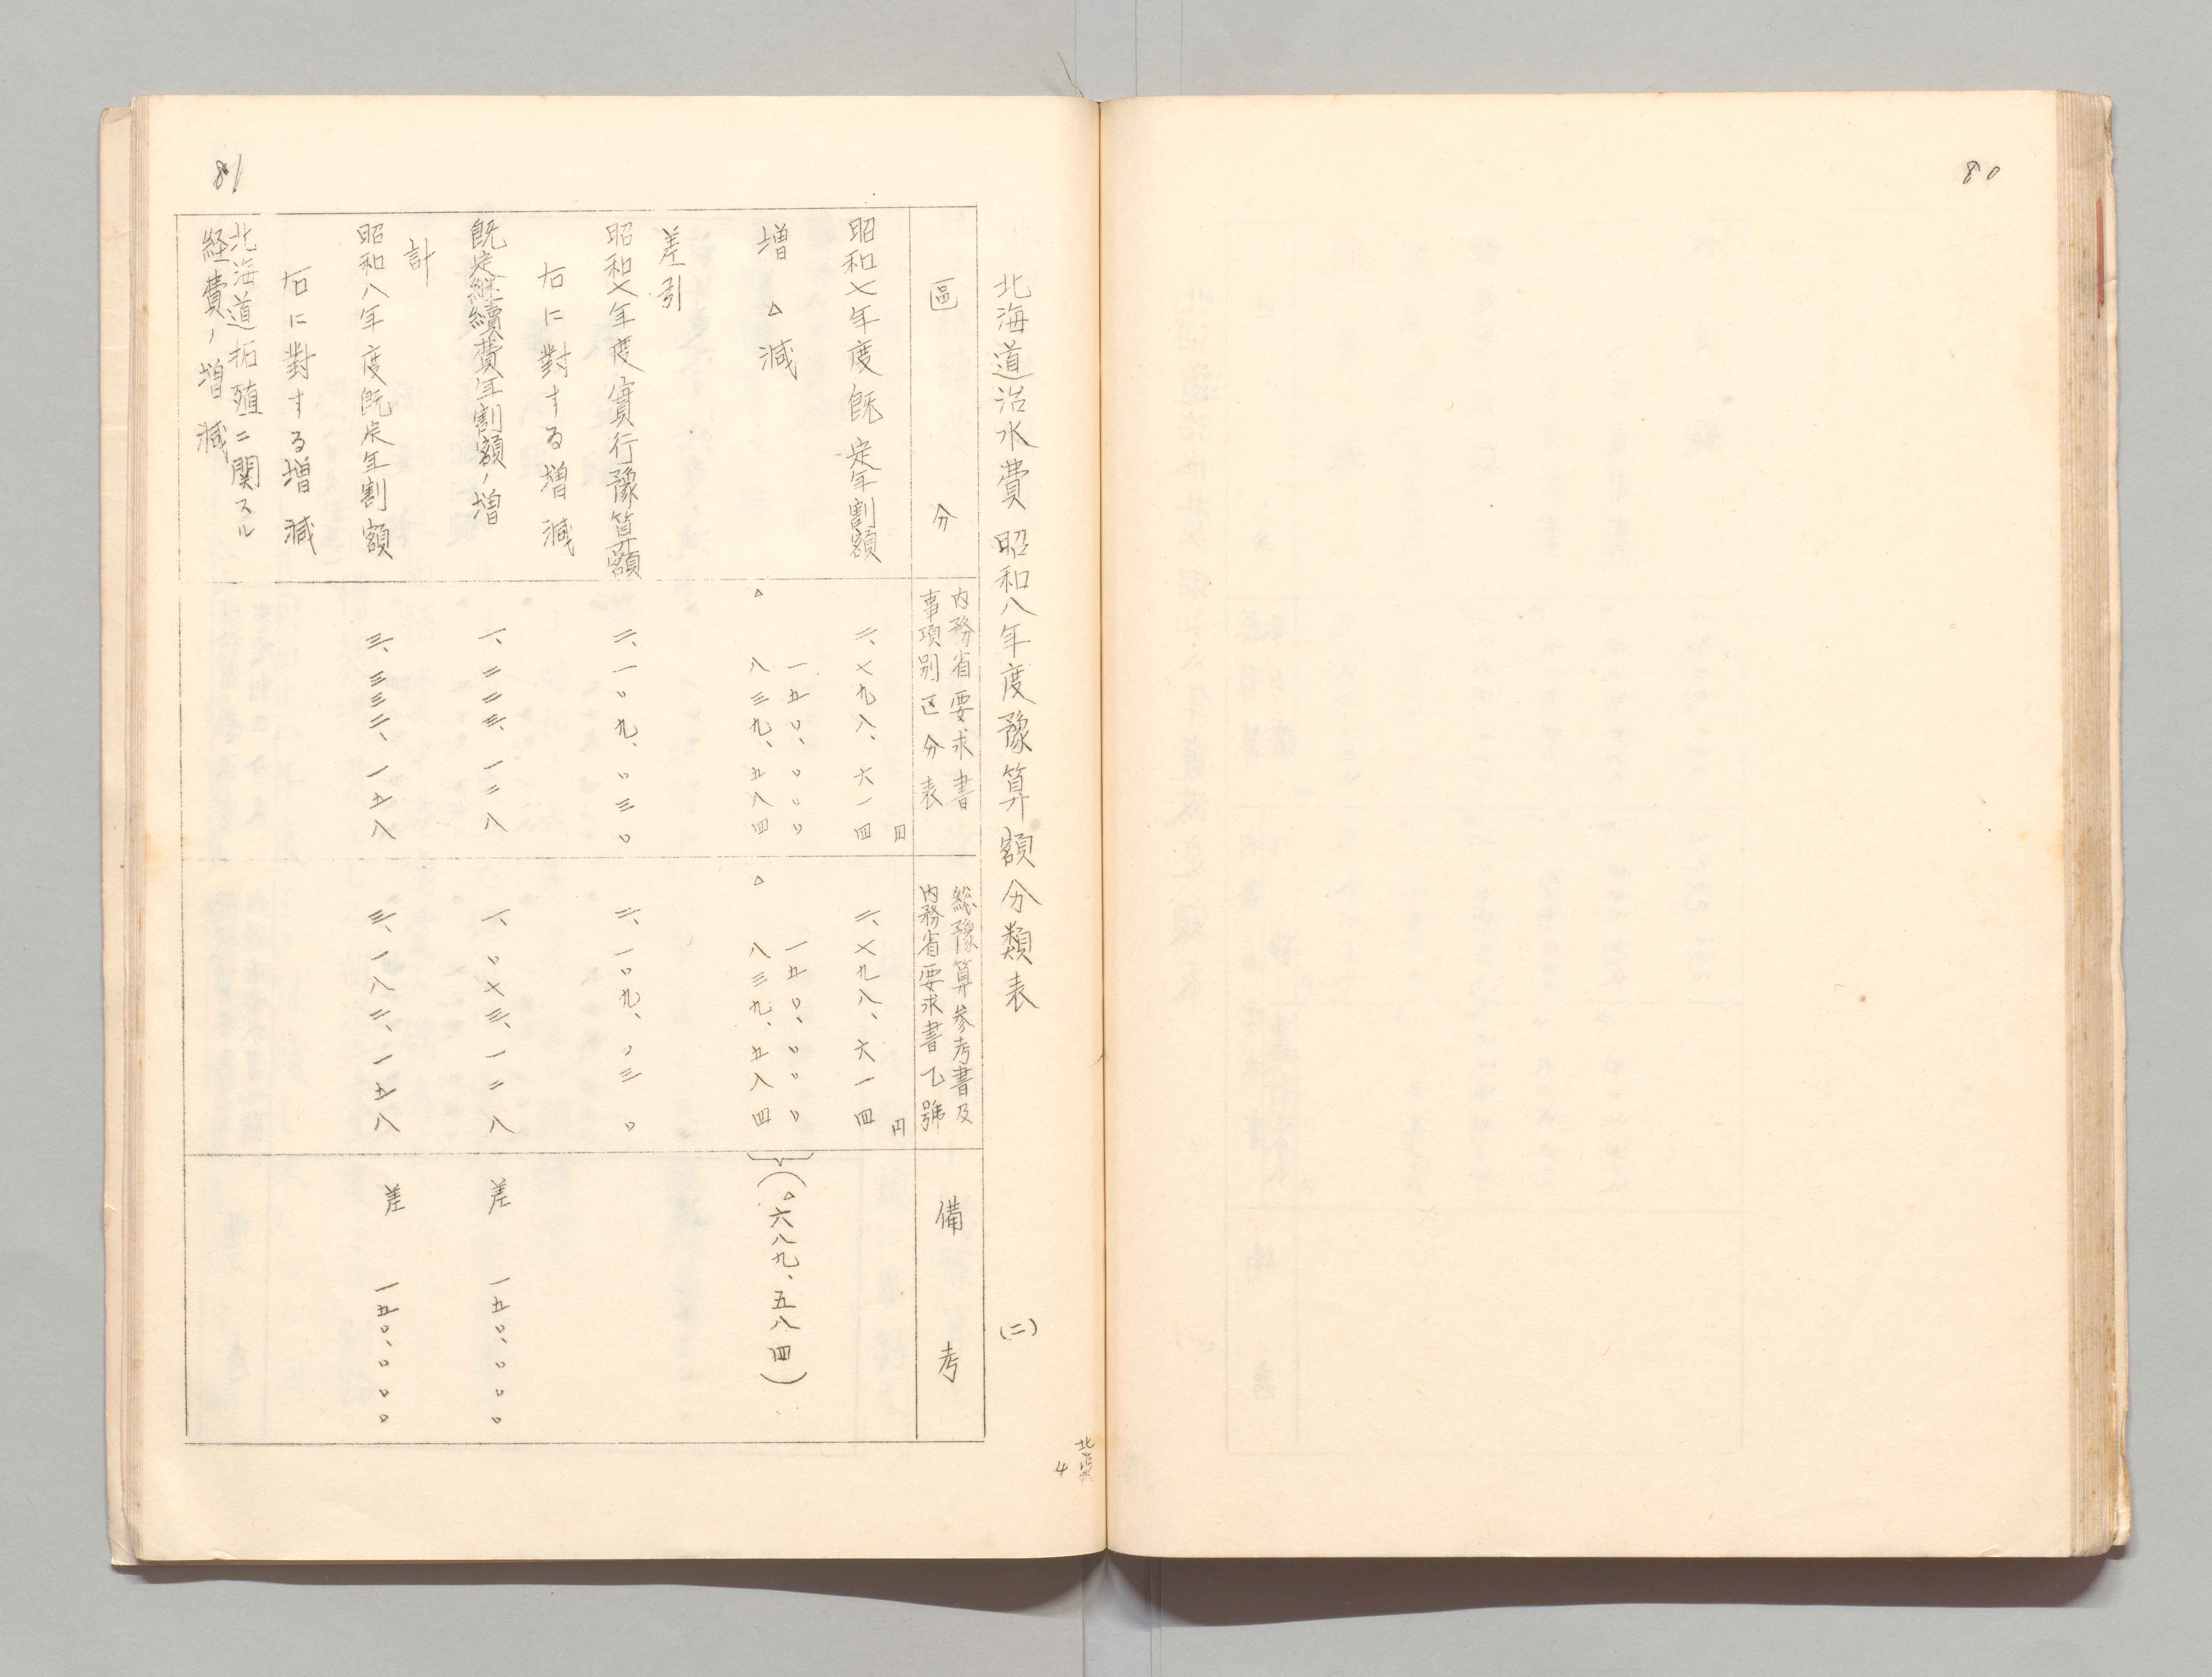 80
81
北海道治水費 昭和八年度豫算額分類表 (二)
區分
内務省要求書
事項別区分表
総豫算参考書及
内務省要求書乙號
備考
円
円
昭和七年度既定年割額
二、七九八、六一四
二、七九八、六一四
増 △減
一五〇、〇〇〇
△八三九、五八四
一五〇、〇〇〇
△八三九、五八四
(△六八九、五八四)
差引
昭和七年度實行豫算額
二、一〇九、〇三〇
二、一〇九、〇三〇
右に對する増減
既定継續費年割額ノ増
一、二二三、一二八
一、〇七三、一二八
差 一五〇、〇〇〇
計
昭和八年度既定年割額
三、三三二、一五八
三、一八二、一五八
差 一五〇、〇〇〇
右に對する増減
北海道拓殖ニ関スル
経費ノ増減
4